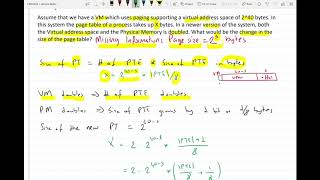 Assume that we have a VM which uses paging supporting a virtual address space of 2^40 bytes. In
this system the page table of a process takes up X bytes. In a newer version of the system, both
the Virtual address space and the Physical Memory is doubled. What would be the change in the
size of the page table? Missing Information: Page size = 2^s bytes
Size of PT = # of PTE * Size of PTE in bytes
X = 2^40-s * |PTE|/8
VM doubles => # of PTE doubles
PM doubles => Size of PTE grows by 1 bit or 1/8 bytes
Size of the new PT = 2
X = 2 * 2^40-s * |PTE|+1/8
= 2 * 2^40-s * (|PTE|/8 + 1/8)